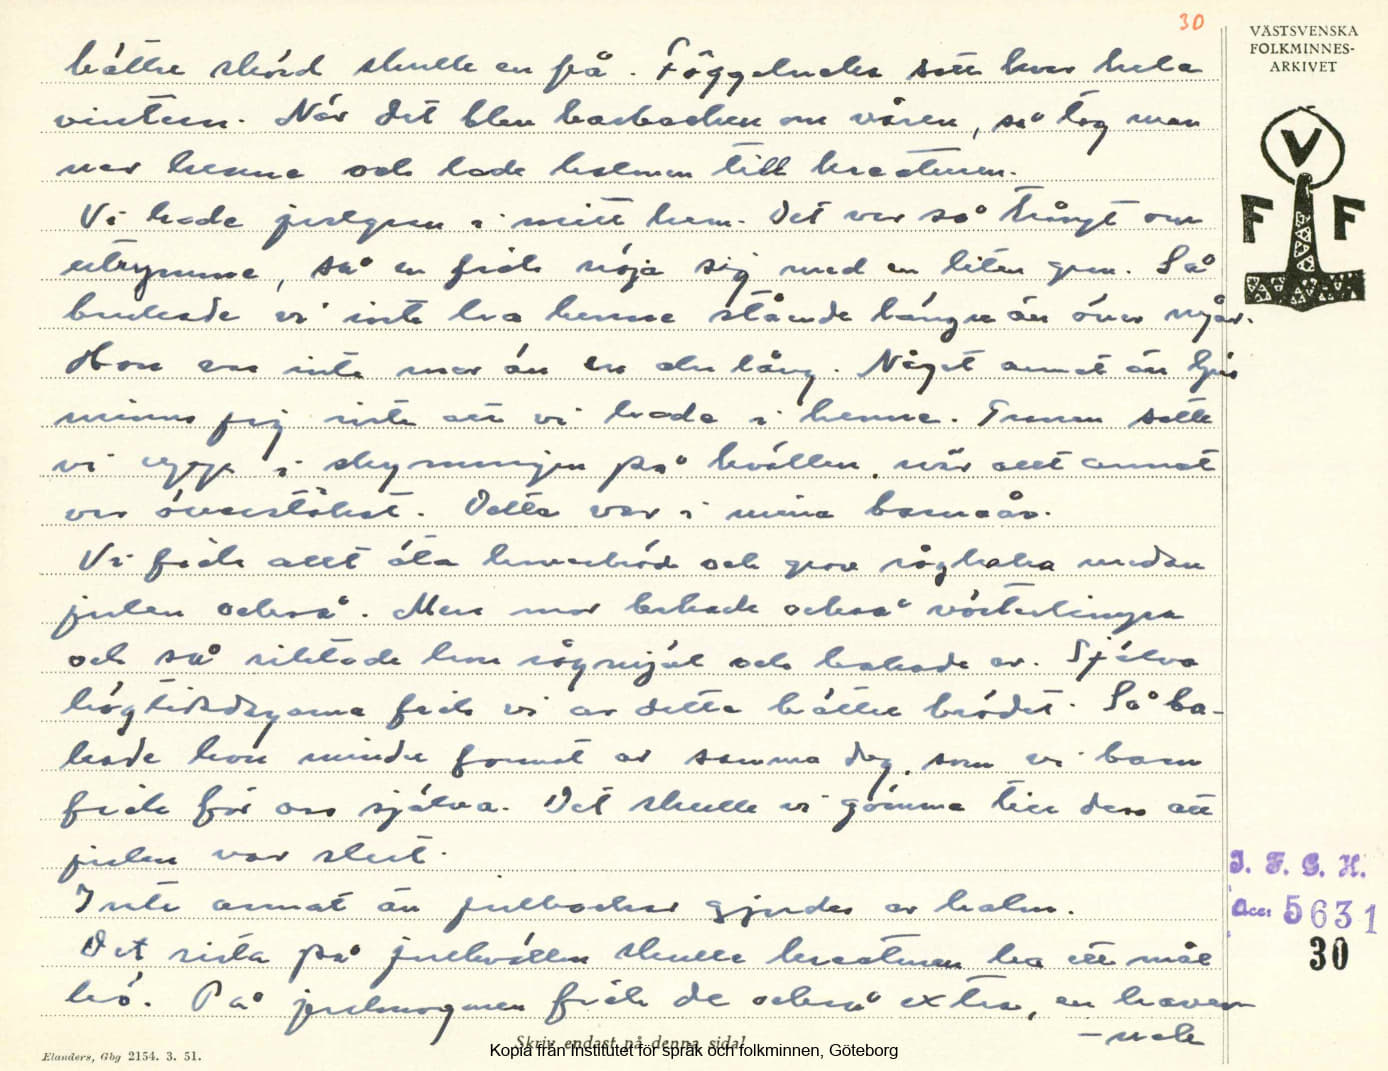 30
VÄSTSVENSKA
FOLKMINNES-
ARKIVET
V
F F
bättre skörd skulle en få. Föggelneka satt kvar hela
vintern. När det blev barbacken om våren, så tog man
ner henne och hade halmen till kreaturen.
Vi hade julgran i mitt hem. Det var så trångt om
utrymme, så en fick nöja sig med en liten gran. Så
brukade vi inte ha henne stående längre än över nyår.
Hon var inte mer än en aln lång. Något annat än ljus
minns jag inte att vi hade i henne. Granen satte
vi upp i skymningen på kvällen, när allt annat
var överstökat. Detta var i mina barnaår.
Vi fick allt äta havrebröd och grov rågkaka medan
julen också. Men mor bakade också vörtelimpa
och så siktade hon rågmjöl och bakade av. Själva
högtidsdagarna fick vi av detta bättre brödet. Så ba-
kade hon mindre format av samma deg, som vi barn
fick för oss själva. Det skulle vi gömma till dess att
julen var slut.
Inte annat än julbockar gjordes av halm.
Det sista på julkvällen skulle kreaturen ha ett mål
hö. På julmorgonen fick de också extra, en haver-
-nek
J. F. G. H.
Acc: 5631
30
Skriv endast på denna sida!
Elanders, Gbg 2154. 3. 51.
Kopia från Institutet för språk och folkminnen, Göteborg